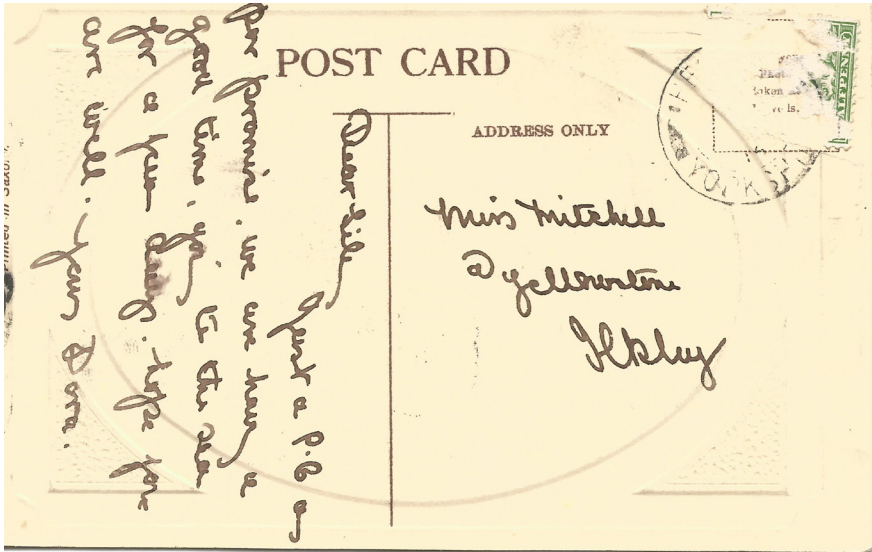 POST CARD
ADDRESS ONLY
Miss Mitchell
Yellowstone
Ilkley
YORKS
Dear
Just a P.C as
per promise. we are having a
good time, to the sea
for a few days. Hope you
are well. Your Dora.